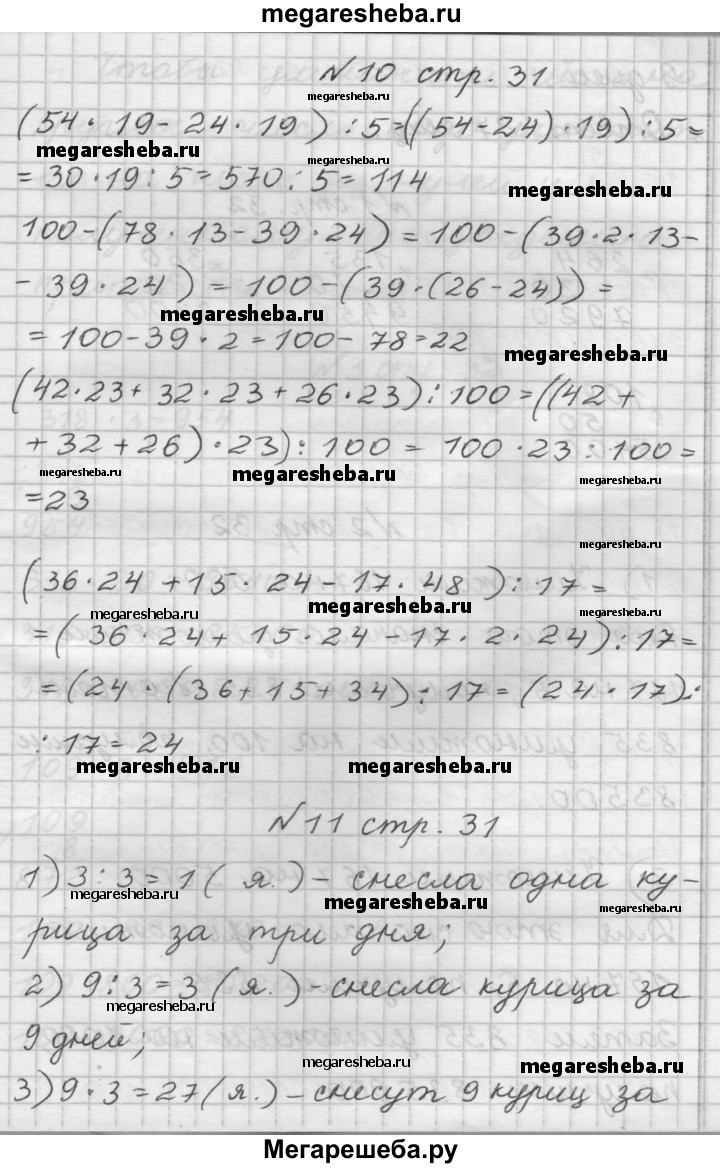 megaresheba.ru
№10 стр. 31
megaresheba.ru
(54 · 19 - 24 · 19) : 5 = ((54 - 24) · 19) : 5 =
megaresheba.ru megaresheba.ru
= 30 · 19 : 5 = 570 : 5 = 114
megaresheba.ru
100 - (78 · 13 - 39 · 24) = 100 - (39 · 2 · 13 -
- 39 · 24) = 100 - (39 · (26 - 24)) =
megaresheba.ru
= 100 - 39 · 2 = 100 - 78 = 22
megaresheba.ru
(42 · 23 + 32 · 23 + 26 · 23) : 100 = ((42 +
+ 32 + 26) · 23) : 100 = 100 · 23 : 100 =
megaresheba.ru megaresheba.ru megaresheba.ru
= 23
megaresheba.ru
(36 · 24 + 15 · 24 - 17 · 48) : 17 =
megaresheba.ru megaresheba.ru megaresheba.ru
= (36 · 24 + 15 · 24 - 17 · 2 · 24) : 17 =
= (24 · (36 + 15 + 34) : 17 = (24 · 17) :
: 17 = 24
megaresheba.ru megaresheba.ru
№11 стр. 31
1) 3 : 3 = 1 (я.) - снесла одна ку-
megaresheba.ru megaresheba.ru megaresheba.ru
рица за три дня;
2) 9 : 3 = 3 (я.) - снесла курица за
megaresheba.ru
9 дней;
megaresheba.ru megaresheba.ru
3) 9 · 3 = 27 (я.) - снесут 9 куриц за
Мегарешеба.ру